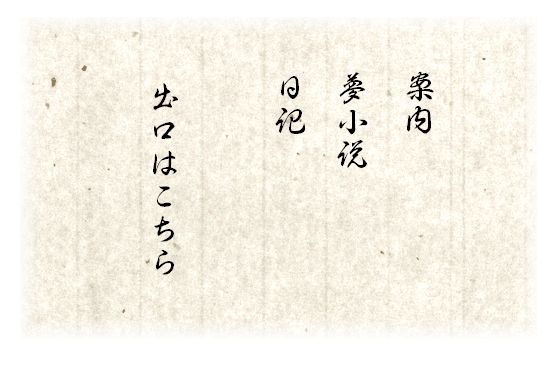 案内
夢小説
日記
出口はこちら